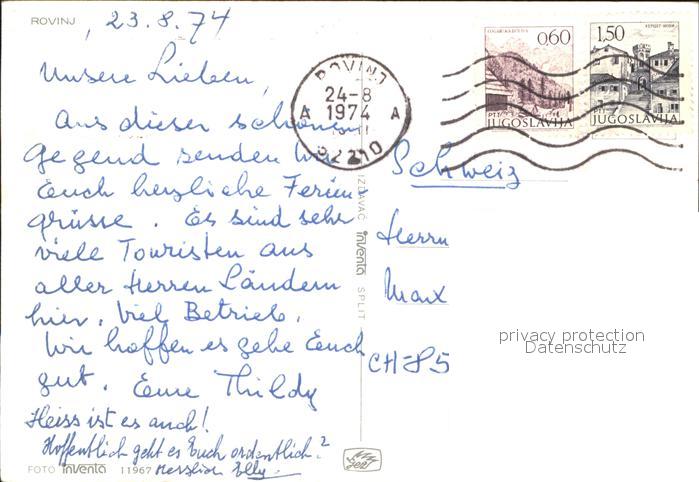 ROVINJ
, 23.8.74
Unsere Lieben,
Aus dieser schönen
Gegend senden wir
Euch herzliche Ferien-
grüsse. Es sind sehr
viele Touristen aus
aller Herren Ländern
hier. Viel Betrieb.
Wir hoffen es gehe Euch
gut. Eure Thildy
Heiss ist es auch!
Hoffentlich geht es Euch ordentlich?
Herzlich Elly.
FOTO inventa 11967
IZDAVAČ inventa SPLIT
ROVINJ
24-8
A 1974 A
52210
0,60
PTT JUGOSLAVIJA
1,50
JUGOSLAVIJA
Schweiz
Herrn
Max
privacy protection
Datenschutz